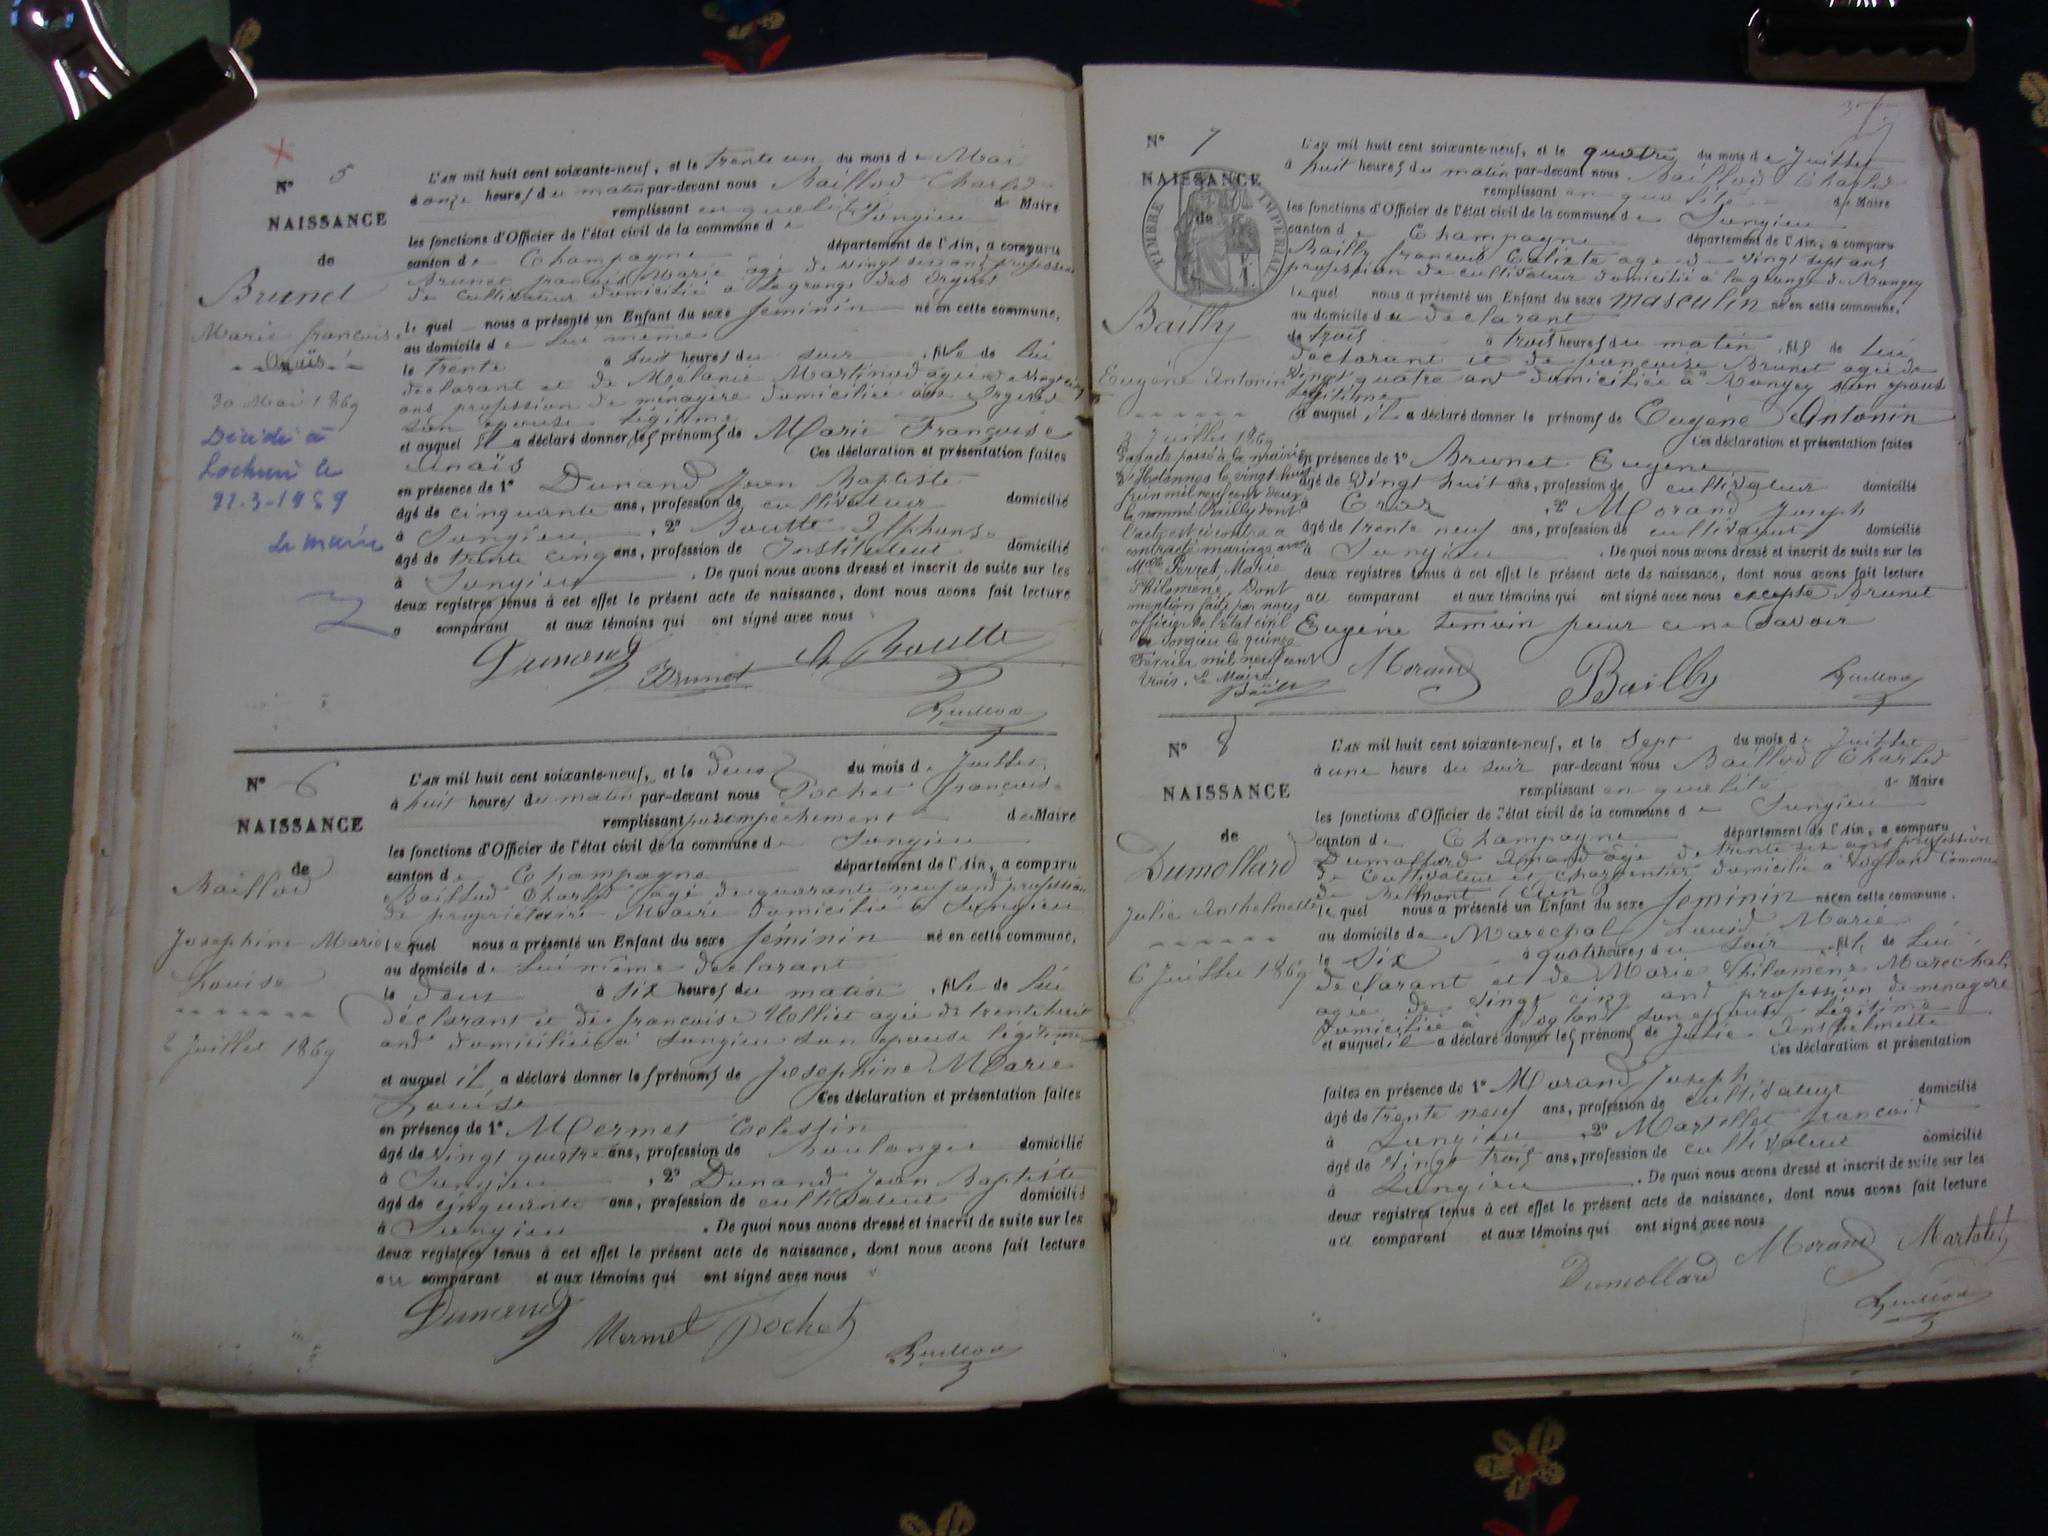 N° 5
NAISSANCE
de
Brunet
Marie françoise
Anaïs
30 Mai 1869
Décédée à
Lochieu le
21-3-1959
Le maire
L'AN mil huit cent soixante-neuf, et le trente un du mois de Mai
à onze heures du matin par-devant nous Baillod Charles
remplissant en qualité de Maire
les fonctions d'Officier de l'état civil de la commune de Songieu
canton de Champagne département de l'Ain, a comparu
Brunet françois Marie âgé de vingt ans profession
de cultivateur domicilié à
le quel nous a présenté un Enfant du sexe féminin né en cette commune,
au domicile de lui même
le trente à huit heures du soir, fille de lui
déclarant et de Mélanie Martinod agée de vingt cinq
ans profession de ménagère domiciliée
son épouse légitime
et auquel il a déclaré donner les prénoms de Marie Françoise
Anaïs Ces déclaration et présentation faites
en présence de 1° Dunand Jean Baptiste
âgé de cinquante ans, profession de cultivateur domicilié
à Songieu, 2° Boutte Alphonse
âgé de trente cinq ans, profession de Instituteur domicilié
à Songieu. De quoi nous avons dressé et inscrit de suite sur les
deux registres tenus à cet effet le présent acte de naissance, dont nous avons fait lecture
a comparant et aux témoins qui ont signé avec nous
Dunand Brunet A Boutte
Baillod
N° 6
NAISSANCE
de
Baillod
Joséphine Marie
Louise
2 Juillet 1869
L'AN mil huit cent soixante-neuf, et le deux du mois de Juillet
à huit heures du matin par-devant nous Pochet françois
remplissant par empêchement de Maire
les fonctions d'Officier de l'état civil de la commune de Songieu
canton de Champagne département de l'Ain, a comparu
Baillod Charles agé de quarante neuf ans profession
de propriétaire Maire domicilié à Songieu
le quel nous a présenté un Enfant du sexe féminin né en cette commune,
au domicile de lui même déclarant
le deux à six heures du matin, fille de lui
déclarant et de françoise agée de trente huit
ans domiciliée à Songieu son épouse légitime
et auquel il a déclaré donner les prénoms de Joséphine Marie
Louise Ces déclaration et présentation faites
en présence de 1° Mermet Célestin
âgé de vingt quatre ans, profession de Boulanger domicilié
à Songieu, 2° Dunand Jean Baptiste
âgé de cinquante ans, profession de cultivateur domicilié
à Songieu. De quoi nous avons dressé et inscrit de suite sur les
deux registres tenus à cet effet le présent acte de naissance, dont nous avons fait lecture
au comparant et aux témoins qui ont signé avec nous
Dunand Mermet Pochet
Baillod
N° 7
NAISSANCE
de
TIMBRE IMPERIAL
Bailly
Eugène Antonin
3 Juillet 1869
Par acte passé à la mairie
d'Hotonnes le vingt huit
juin mil neuf cent deux
le nommé Bailly dont
l'acte est ci contre a
contracté mariage avec
Melle Perret, Marie
Philomène, Dont
mention faite par nous
officier de l'état civil
de Songieu le quinze
Février mil neuf cent
trois. Le Maire
L'AN mil huit cent soixante-neuf, et le quatre du mois de Juillet
à huit heures du matin par-devant nous Baillod Charles
remplissant en qualité de Maire
les fonctions d'Officier de l'état civil de la commune de Songieu
canton de Champagne département de l'Ain, a comparu
Bailly françois Calixte agé de vingt sept ans
profession de cultivateur domicilié à la grange de Rongey
le quel nous a présenté un Enfant du sexe masculin né en cette commune,
au domicile du déclarant
le trois à trois heures du matin, fils de lui
déclarant et de françoise Brunet agée de
vingt quatre ans domiciliée à Rongey son épouse
légitime
et auquel il a déclaré donner le prénoms de Eugène Antonin
Ces déclaration et présentation faites
en présence de 1° Brunet Eugène
âgé de vingt huit ans, profession de cultivateur domicilié
à Craz, 2° Morand Joseph
âgé de trente neuf ans, profession de cultivateur domicilié
à Songieu. De quoi nous avons dressé et inscrit de suite sur les
deux registres tenus à cet effet le présent acte de naissance, dont nous avons fait lecture
au comparant et aux témoins qui ont signé avec nous excepté Brunet
Eugène témoin pour ne savoir
Morand Bailly Baillod
N° 8
NAISSANCE
de
Dumollard
Julie Anthelmette
6 Juillet 1869
L'AN mil huit cent soixante-neuf, et le Sept du mois de Juillet
à une heure du soir par-devant nous Baillod Charles
remplissant en qualité de Maire
les fonctions d'Officier de l'état civil de la commune de Songieu
canton de Champagne département de l'Ain, a comparu
Dumollard âgé de trente six ans profession
de cultivateur et charpentier domicilié à Voglans Commune
de Belmont (Ain)
le quel nous a présenté un Enfant du sexe féminin né en cette commune.
au domicile de Marechal Louis Marie
le Six à quatre heures du soir, fille de lui
déclarant et de Marie Philomène Marechal
agée de vingt cinq ans profession de ménagère
domiciliée à Voglans son épouse légitime
et auquel il a déclaré donner les prénoms de Julie Anthelmette
Ces déclaration et présentation
faites en présence de 1° Morand Joseph
âgé de trente neuf ans, profession de cultivateur domicilié
à Songieu, 2° Martillet françois
âgé de vingt trois ans, profession de cultivateur domicilié
à Songieu. De quoi nous avons dressé et inscrit de suite sur les
deux registres tenus à cet effet le présent acte de naissance, dont nous avons fait lecture
au comparant et aux témoins qui ont signé avec nous
Dumollard Morand Martelet
Baillod